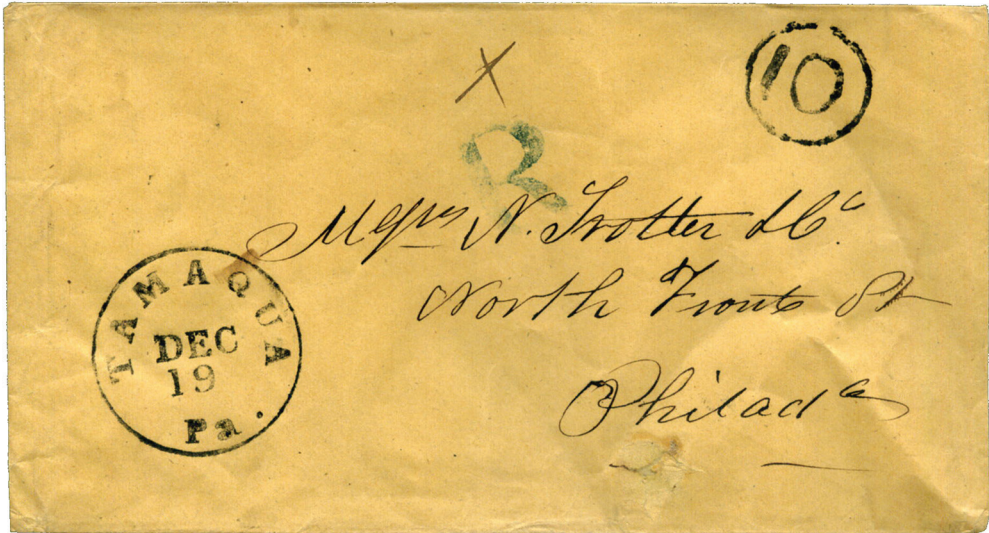 X
10
R
Messrs N. Trotter & Co.
North Front St
Philada
TAMAQUA
DEC
19
Pa.